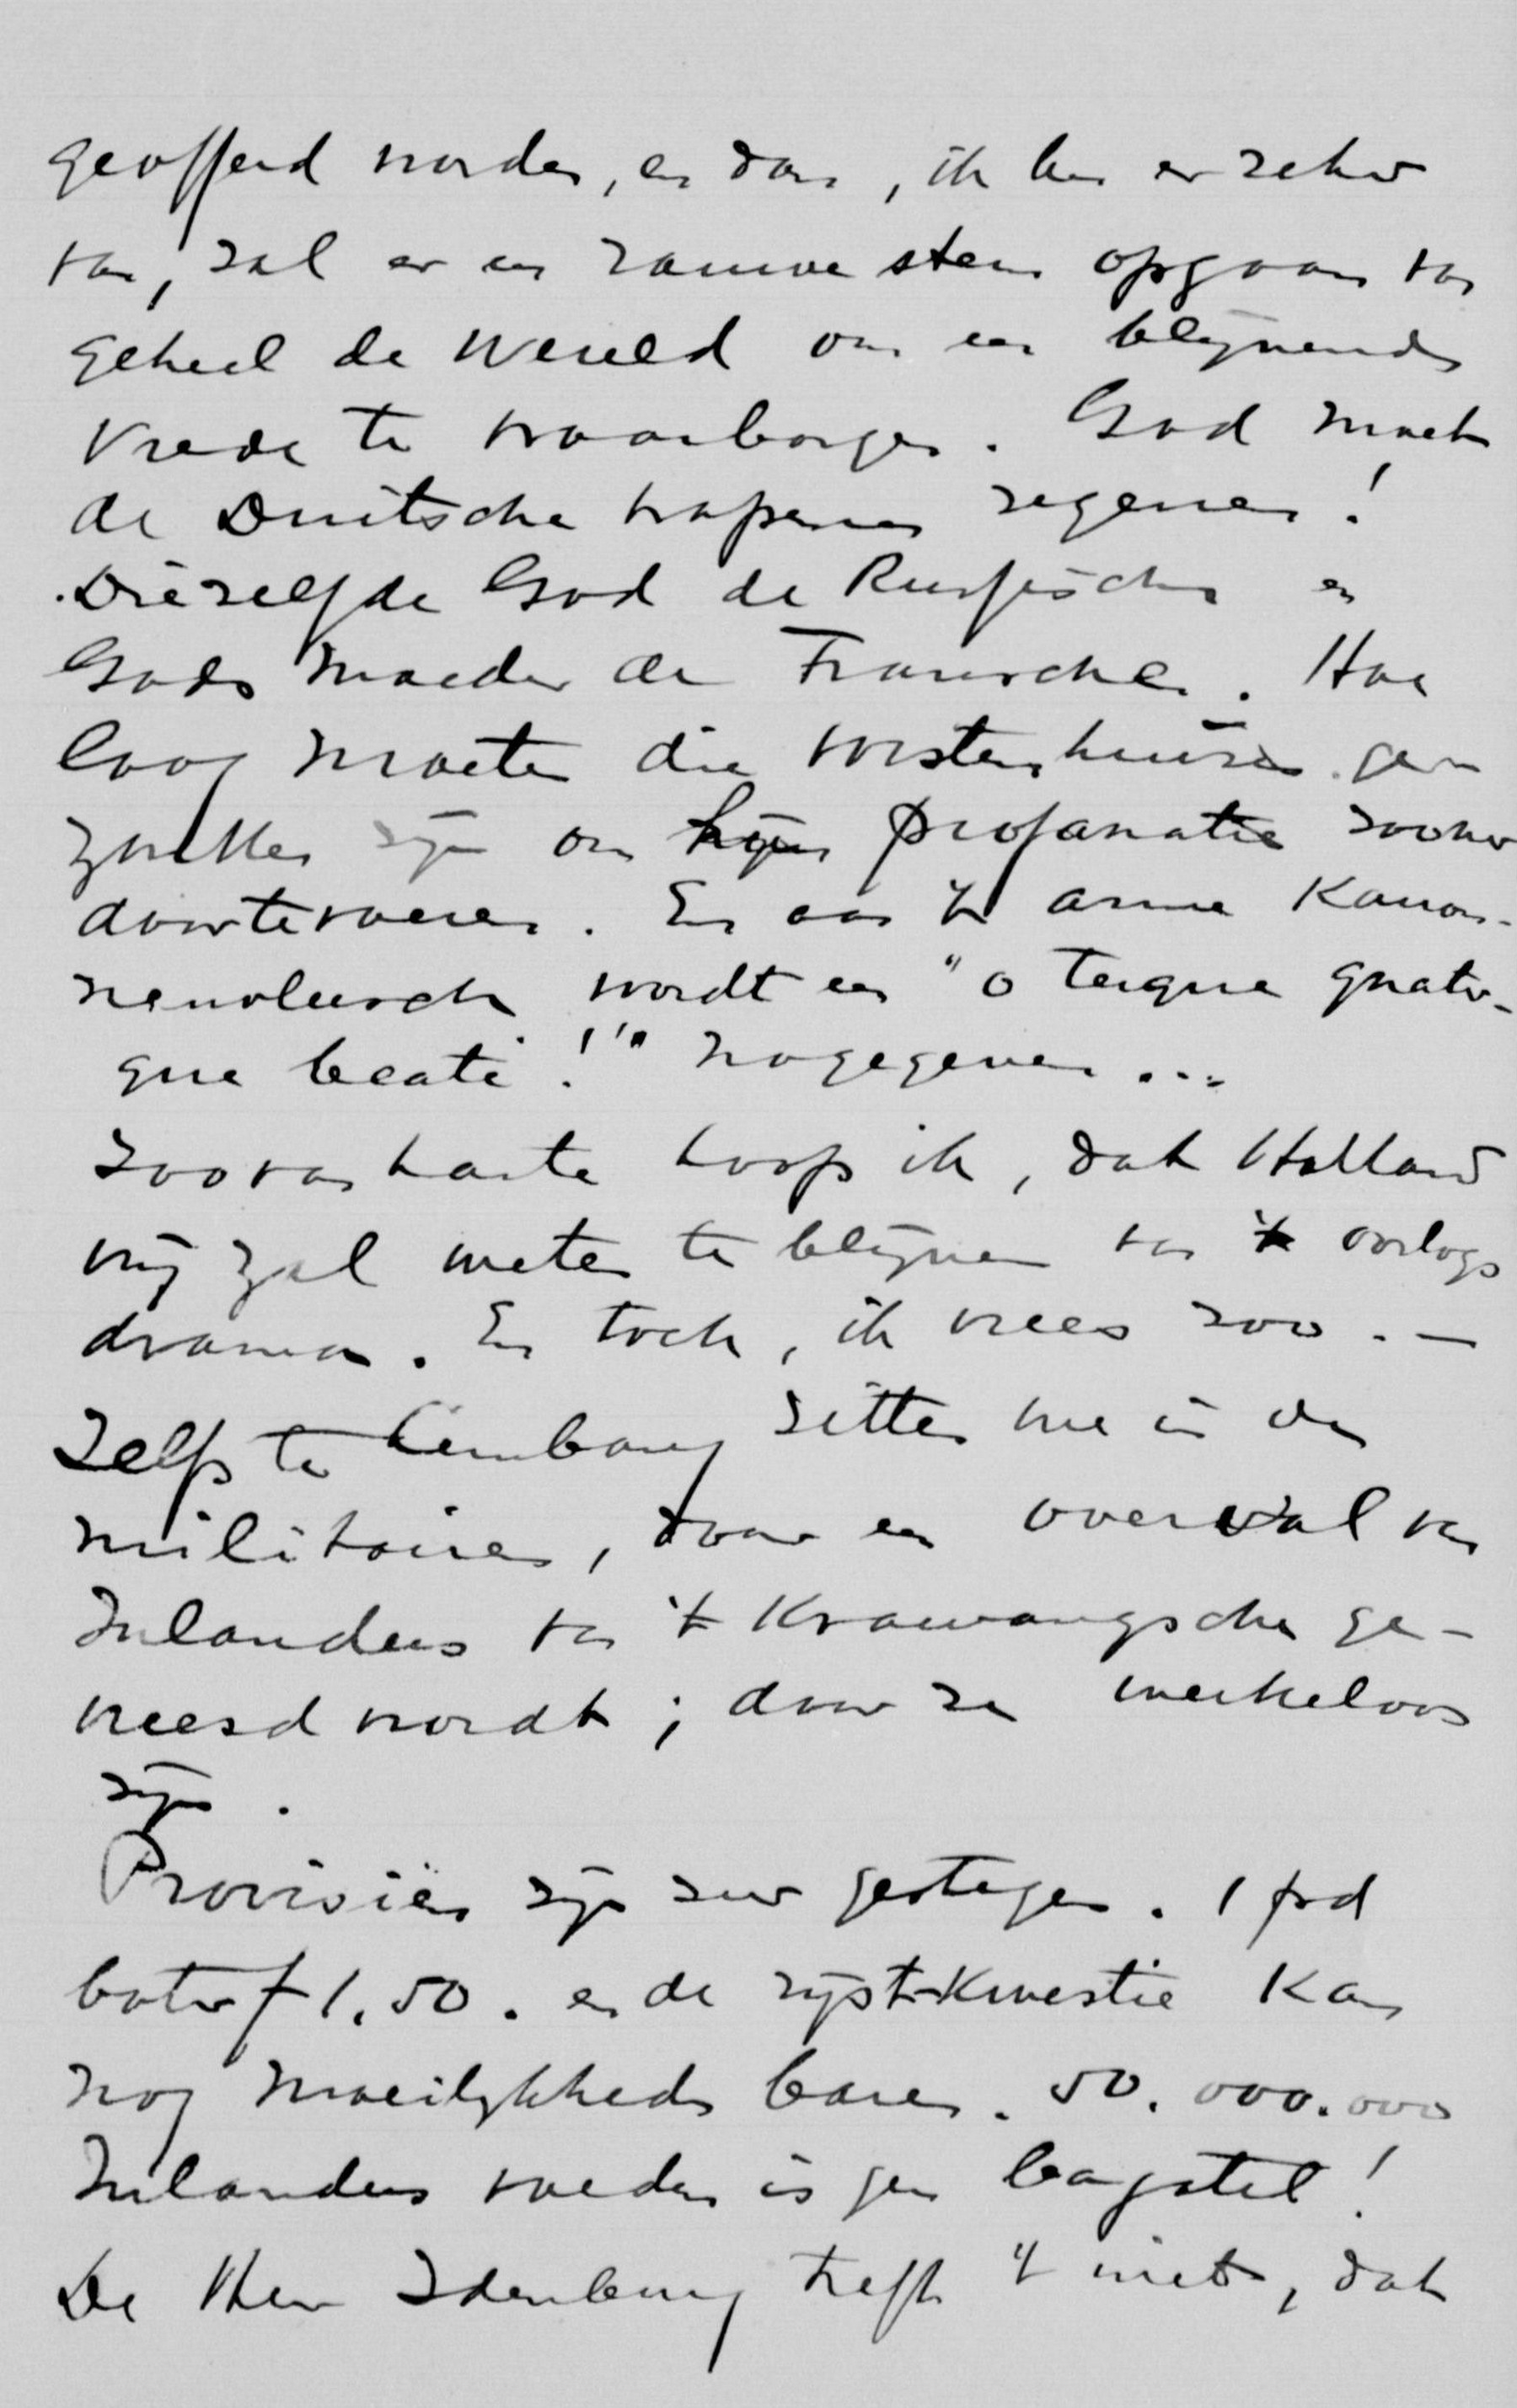 geofferd worden, en dan, ik ben er zeker
van, zal er een stem opgaan van
geheel de wereld om een blijvende
vrede te waarborgen. God moet
de Duitsche wapenen zegenen!
Diezelfde God de Russische en
Gods moeder de Fransche. Hoe
laag moeten die vorstenhuizen ge-
zonken zijn om profanatie zoover
doortevoeren. En aan 't arme Kanon-
nenvleesch wordt een "o terque quater-
que beati!" nagegeven...
Zoo van harte hoop ik, dat Holland
vrij zal weten te blijven van 't oorlogs
drama. En toch, ik vrees zoo. —
Zelfs te Lembang zitten we in de
militairen, daar een overval van
Inlanders van 't Krawangsche ge-
vreesd wordt; daar ze werkeloos
zijn.
Provisiën zijn zeer gestegen. 1 pd
boter f 1.50. en de rijst-kwestie kan
nog moeilijkheden baren. 50.000.000
Inlanders voeden is geen bagatel!
De Heer Idenburg treft 't niet, dat